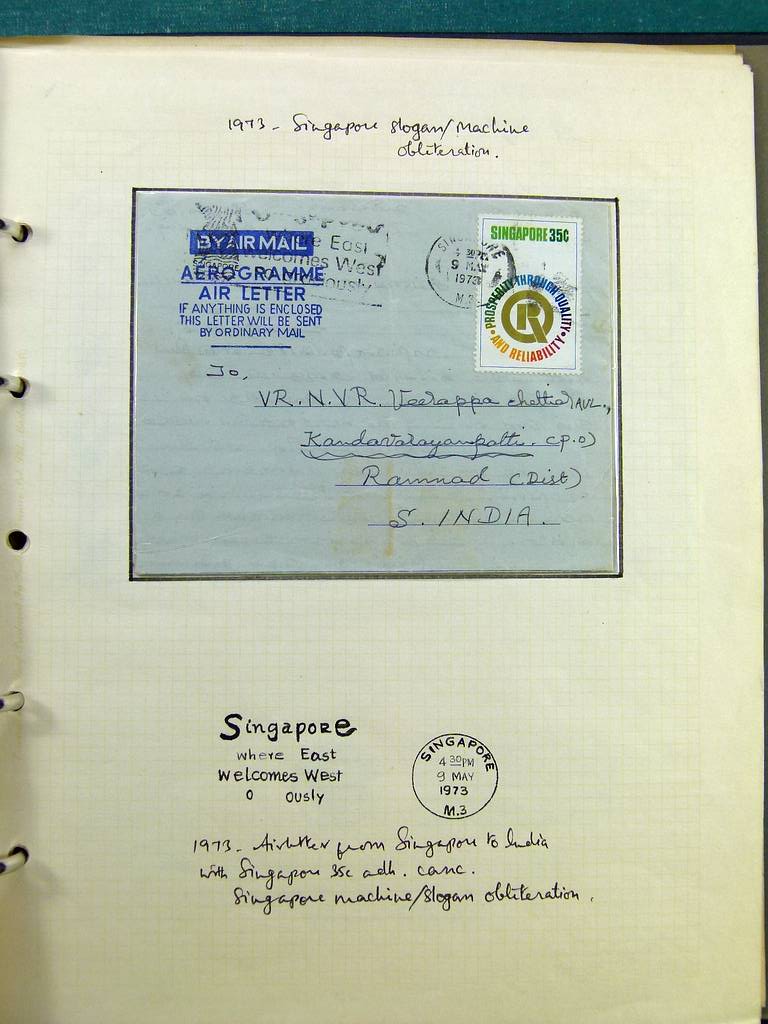 1973 - Singapore slogan/machine
obliteration.
Singapore
Where East
Welcomes West
ously
BY AIR MAIL
AEROGRAMME
AIR LETTER
IF ANYTHING IS ENCLOSED
THIS LETTER WILL BE SENT
BY ORDINARY MAIL
SINGAPORE
4 30PM
9 MAY
1973
M.3
SINGAPORE 35C
PROSPERITY THROUGH QUALITY
• AND RELIABILITY •
QR
To,
VR. N. VR. Veerappa chettiar AVL.,
Kandavarayanpatti. (P.O)
Ramnad (Dist)
S. INDIA.
Singapore
where East
Welcomes West
O ously
SINGAPORE
4 30PM
9 MAY
1973
M.3
1973 - Airletter from Singapore to India
with Singapore 35c adh. canc.
Singapore machine/slogan obliteration.